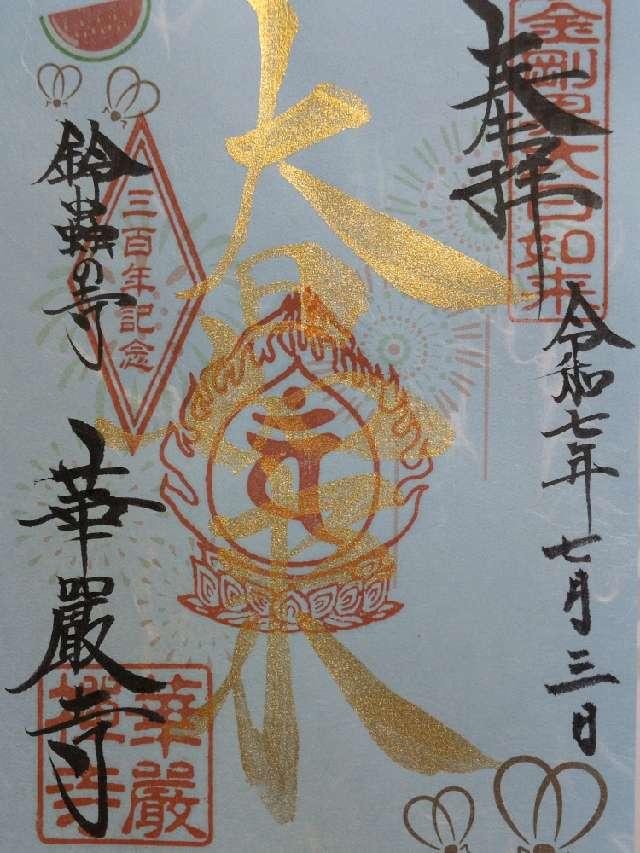 奉拝
金剛界大日如来
令和七年七月三日
大日如来
鈴蟲の寺
三百年記念
華嚴寺
華嚴
禅寺